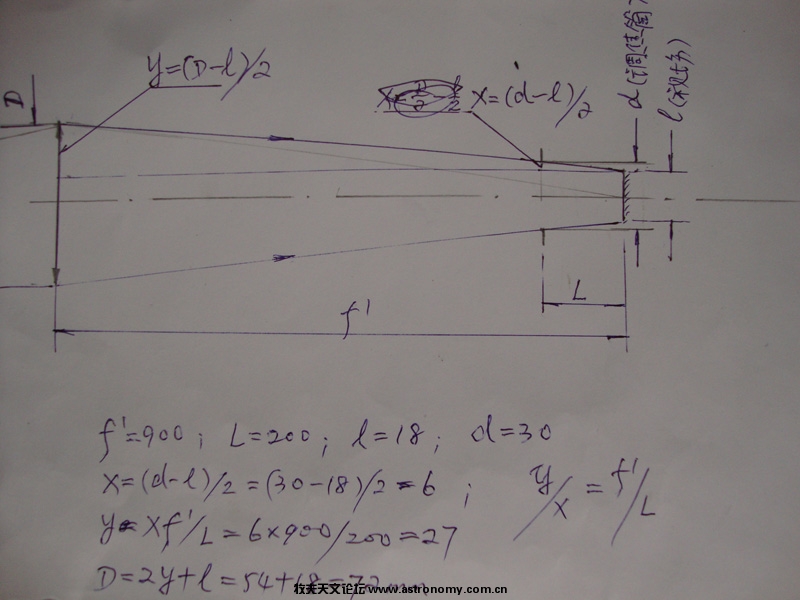 D
y=(D-l)/2
x=(d-l)/2
d(调焦筒
l(视场)
L
f'
f'=900; L=200; l=18; d=30
x=(d-l)/2=(30-18)/2=6;
y/x=f'/L
y=xf'/L=6×900/200=27
D=2y+l=54+18=72mm
牧夫天文论坛 www.astronomy.com.cn